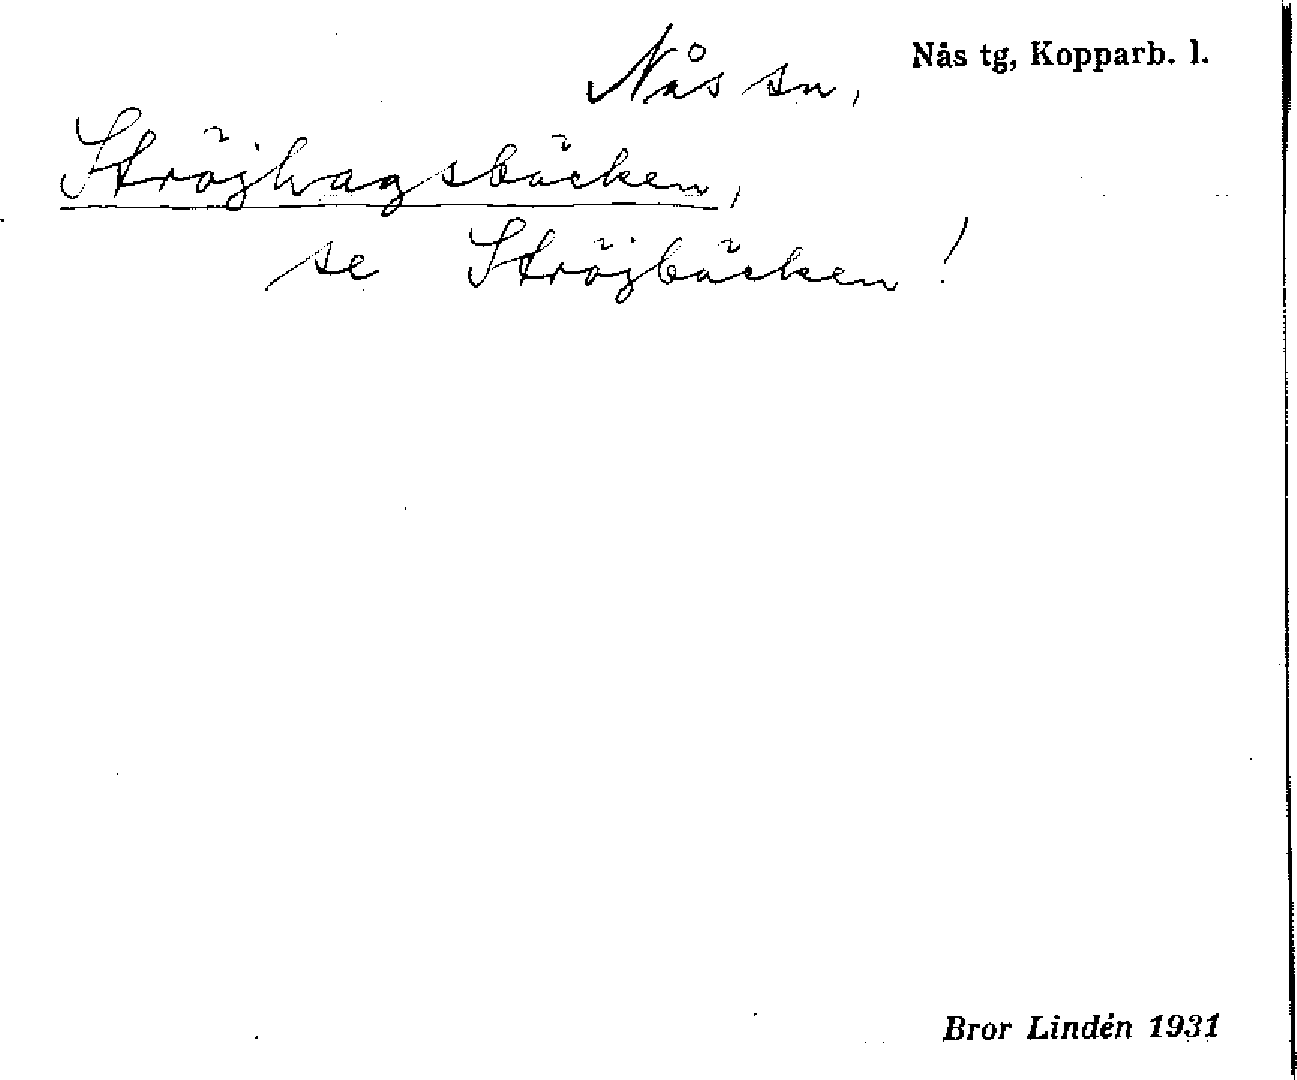 Nås sn,
Nås tg, Kopparb. l.
Ströjhagsbäcken,
se Ströjbäcken!
Bror Lindén 1931